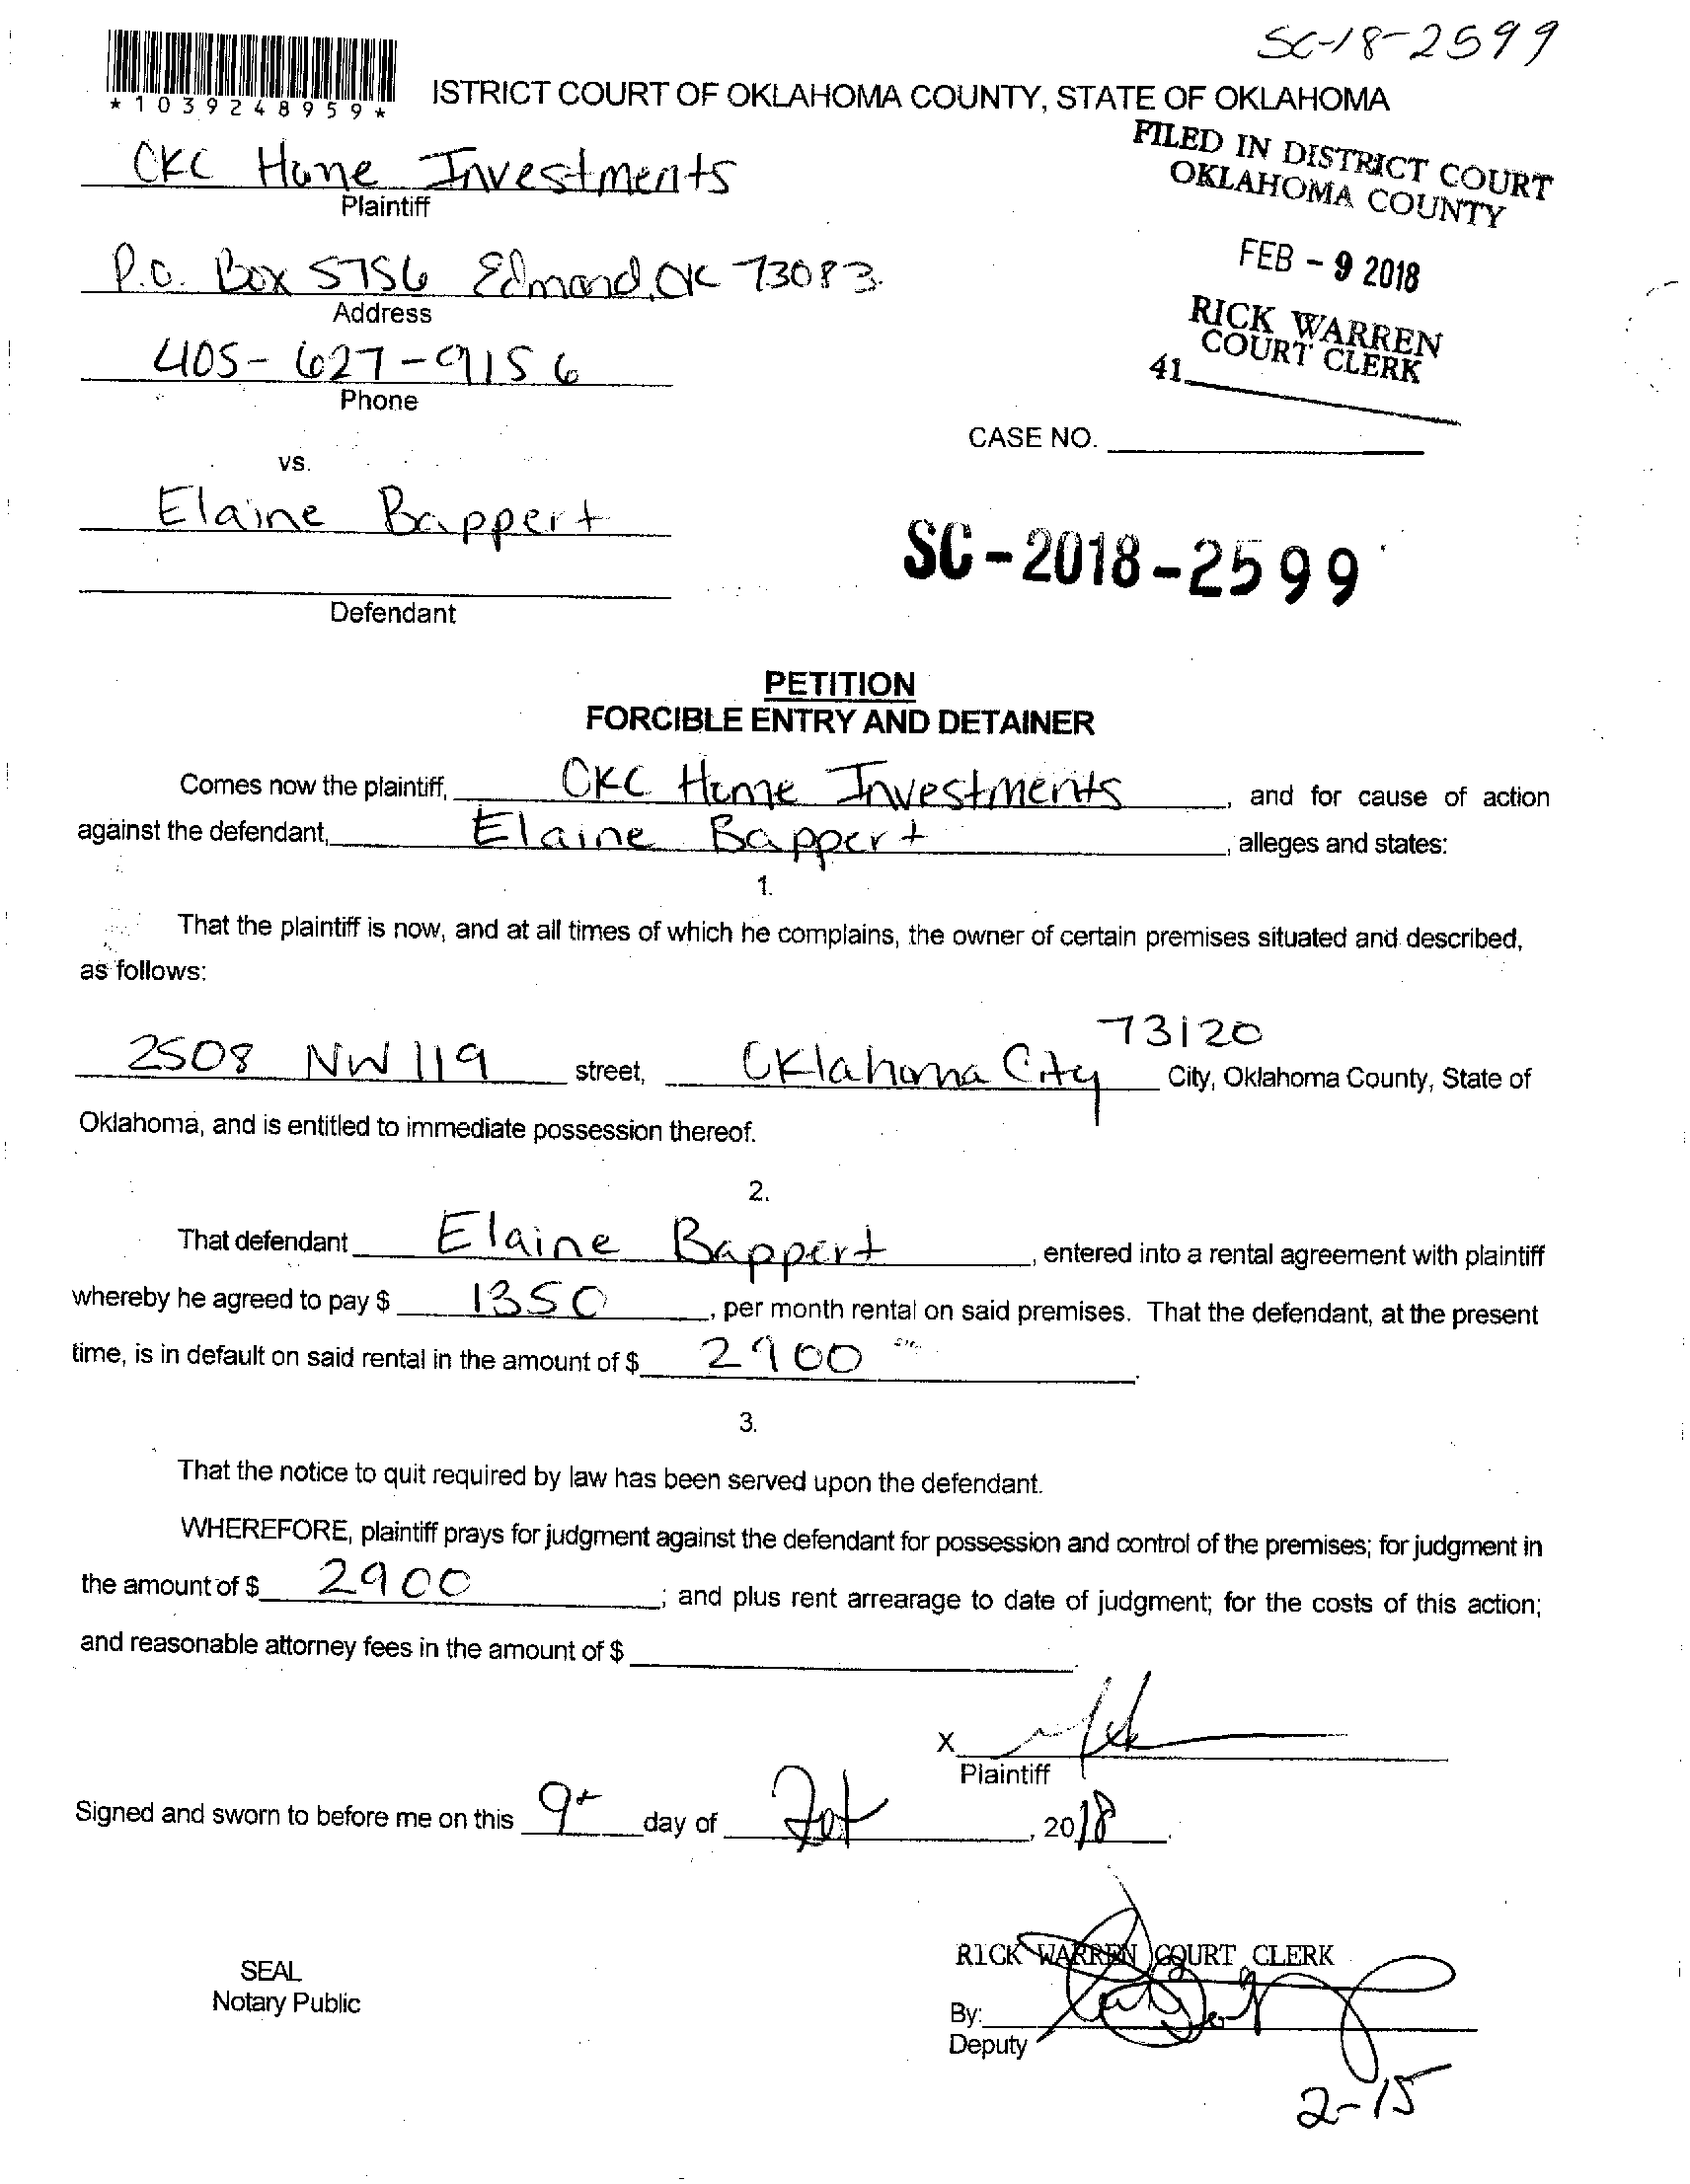 SC-18-2599
*1039248959*
ISTRICT COURT OF OKLAHOMA COUNTY, STATE OF OKLAHOMA
FILED IN DISTRICT COURT
OKLAHOMA COUNTY
CKC Home Investments
Plaintiff
FEB - 9 2018
P.O. Box 5756 Edmond, OK 73083
Address
RICK WARREN
COURT CLERK
405-627-9156
41
Phone
CASE NO.
vs.
Elaine Bappert
SC-2018-2599
Defendant
PETITION
FORCIBLE ENTRY AND DETAINER
Comes now the plaintiff, CKC Home Investments, and for cause of action
against the defendant, Elaine Bappert, alleges and states:
1.
That the plaintiff is now, and at all times of which he complains, the owner of certain premises situated and described,
as follows:
73120
2508 NW 119 street, Oklahoma City City, Oklahoma County, State of
Oklahoma, and is entitled to immediate possession thereof.
2.
That defendant Elaine Bappert, entered into a rental agreement with plaintiff
whereby he agreed to pay $ 1350, per month rental on said premises. That the defendant, at the present
time, is in default on said rental in the amount of $ 2900.
3.
That the notice to quit required by law has been served upon the defendant.
WHEREFORE, plaintiff prays for judgment against the defendant for possession and control of the premises; for judgment in
the amount of $ 2900; and plus rent arrearage to date of judgment; for the costs of this action;
and reasonable attorney fees in the amount of $
X
Plaintiff
Signed and sworn to before me on this 9 day of , 2018
RICK WARREN COURT CLERK
SEAL
Notary Public
By:
Deputy
2-15